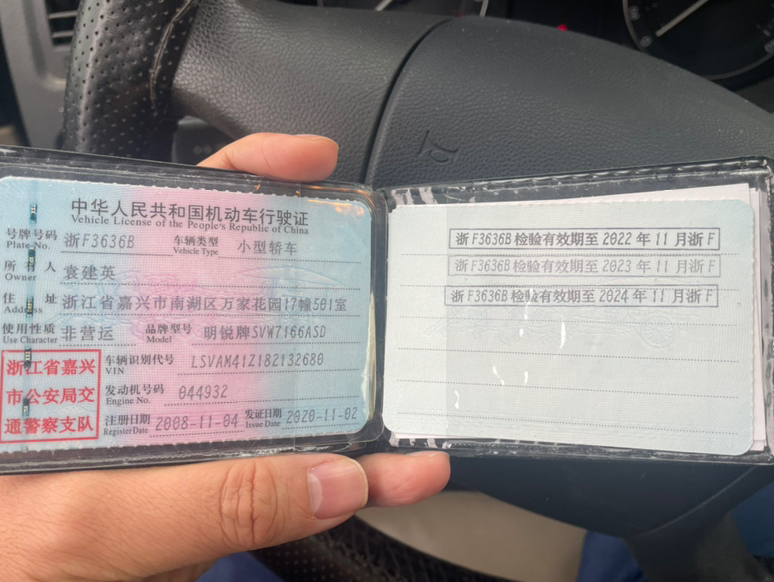 中华人民共和国机动车行驶证
Vehicle License of the People's Republic of China
号牌号码 Plate No. 浙F3636B 车辆类型 Vehicle Type 小型轿车
所有人 Owner 袁建英
住址 Address 浙江省嘉兴市南湖区万家花园17幢501室
使用性质 Use Character 非营运 品牌型号 Model 明锐牌SVW7166ASD
浙江省嘉兴
市公安局交
通警察支队
车辆识别代号 VIN LSVAM41Z182132680
发动机号码 Engine No. 044932
注册日期 Register Date 2008-11-04 发证日期 Issue Date 2020-11-02
浙F3636B检验有效期至2022年11月浙F
浙F3636B检验有效期至2023年11月浙F
浙F3636B检验有效期至2024年11月浙F